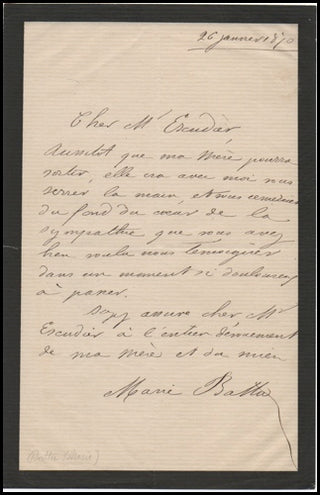 26 janvier 1870
Cher Mr Escudier,
Aussitôt que ma mère pourra
sortir, elle ira avec moi vous
serrer la main, et vous remercier
du fond du cœur de la
sympathie que vous avez
bien voulu nous témoigner
dans un moment si douloureux
à passer.
Soyez assuré cher Mr
Escudier à l'entier dévouement
de ma mère et du mien
Marie Battu
(Battu Marie)